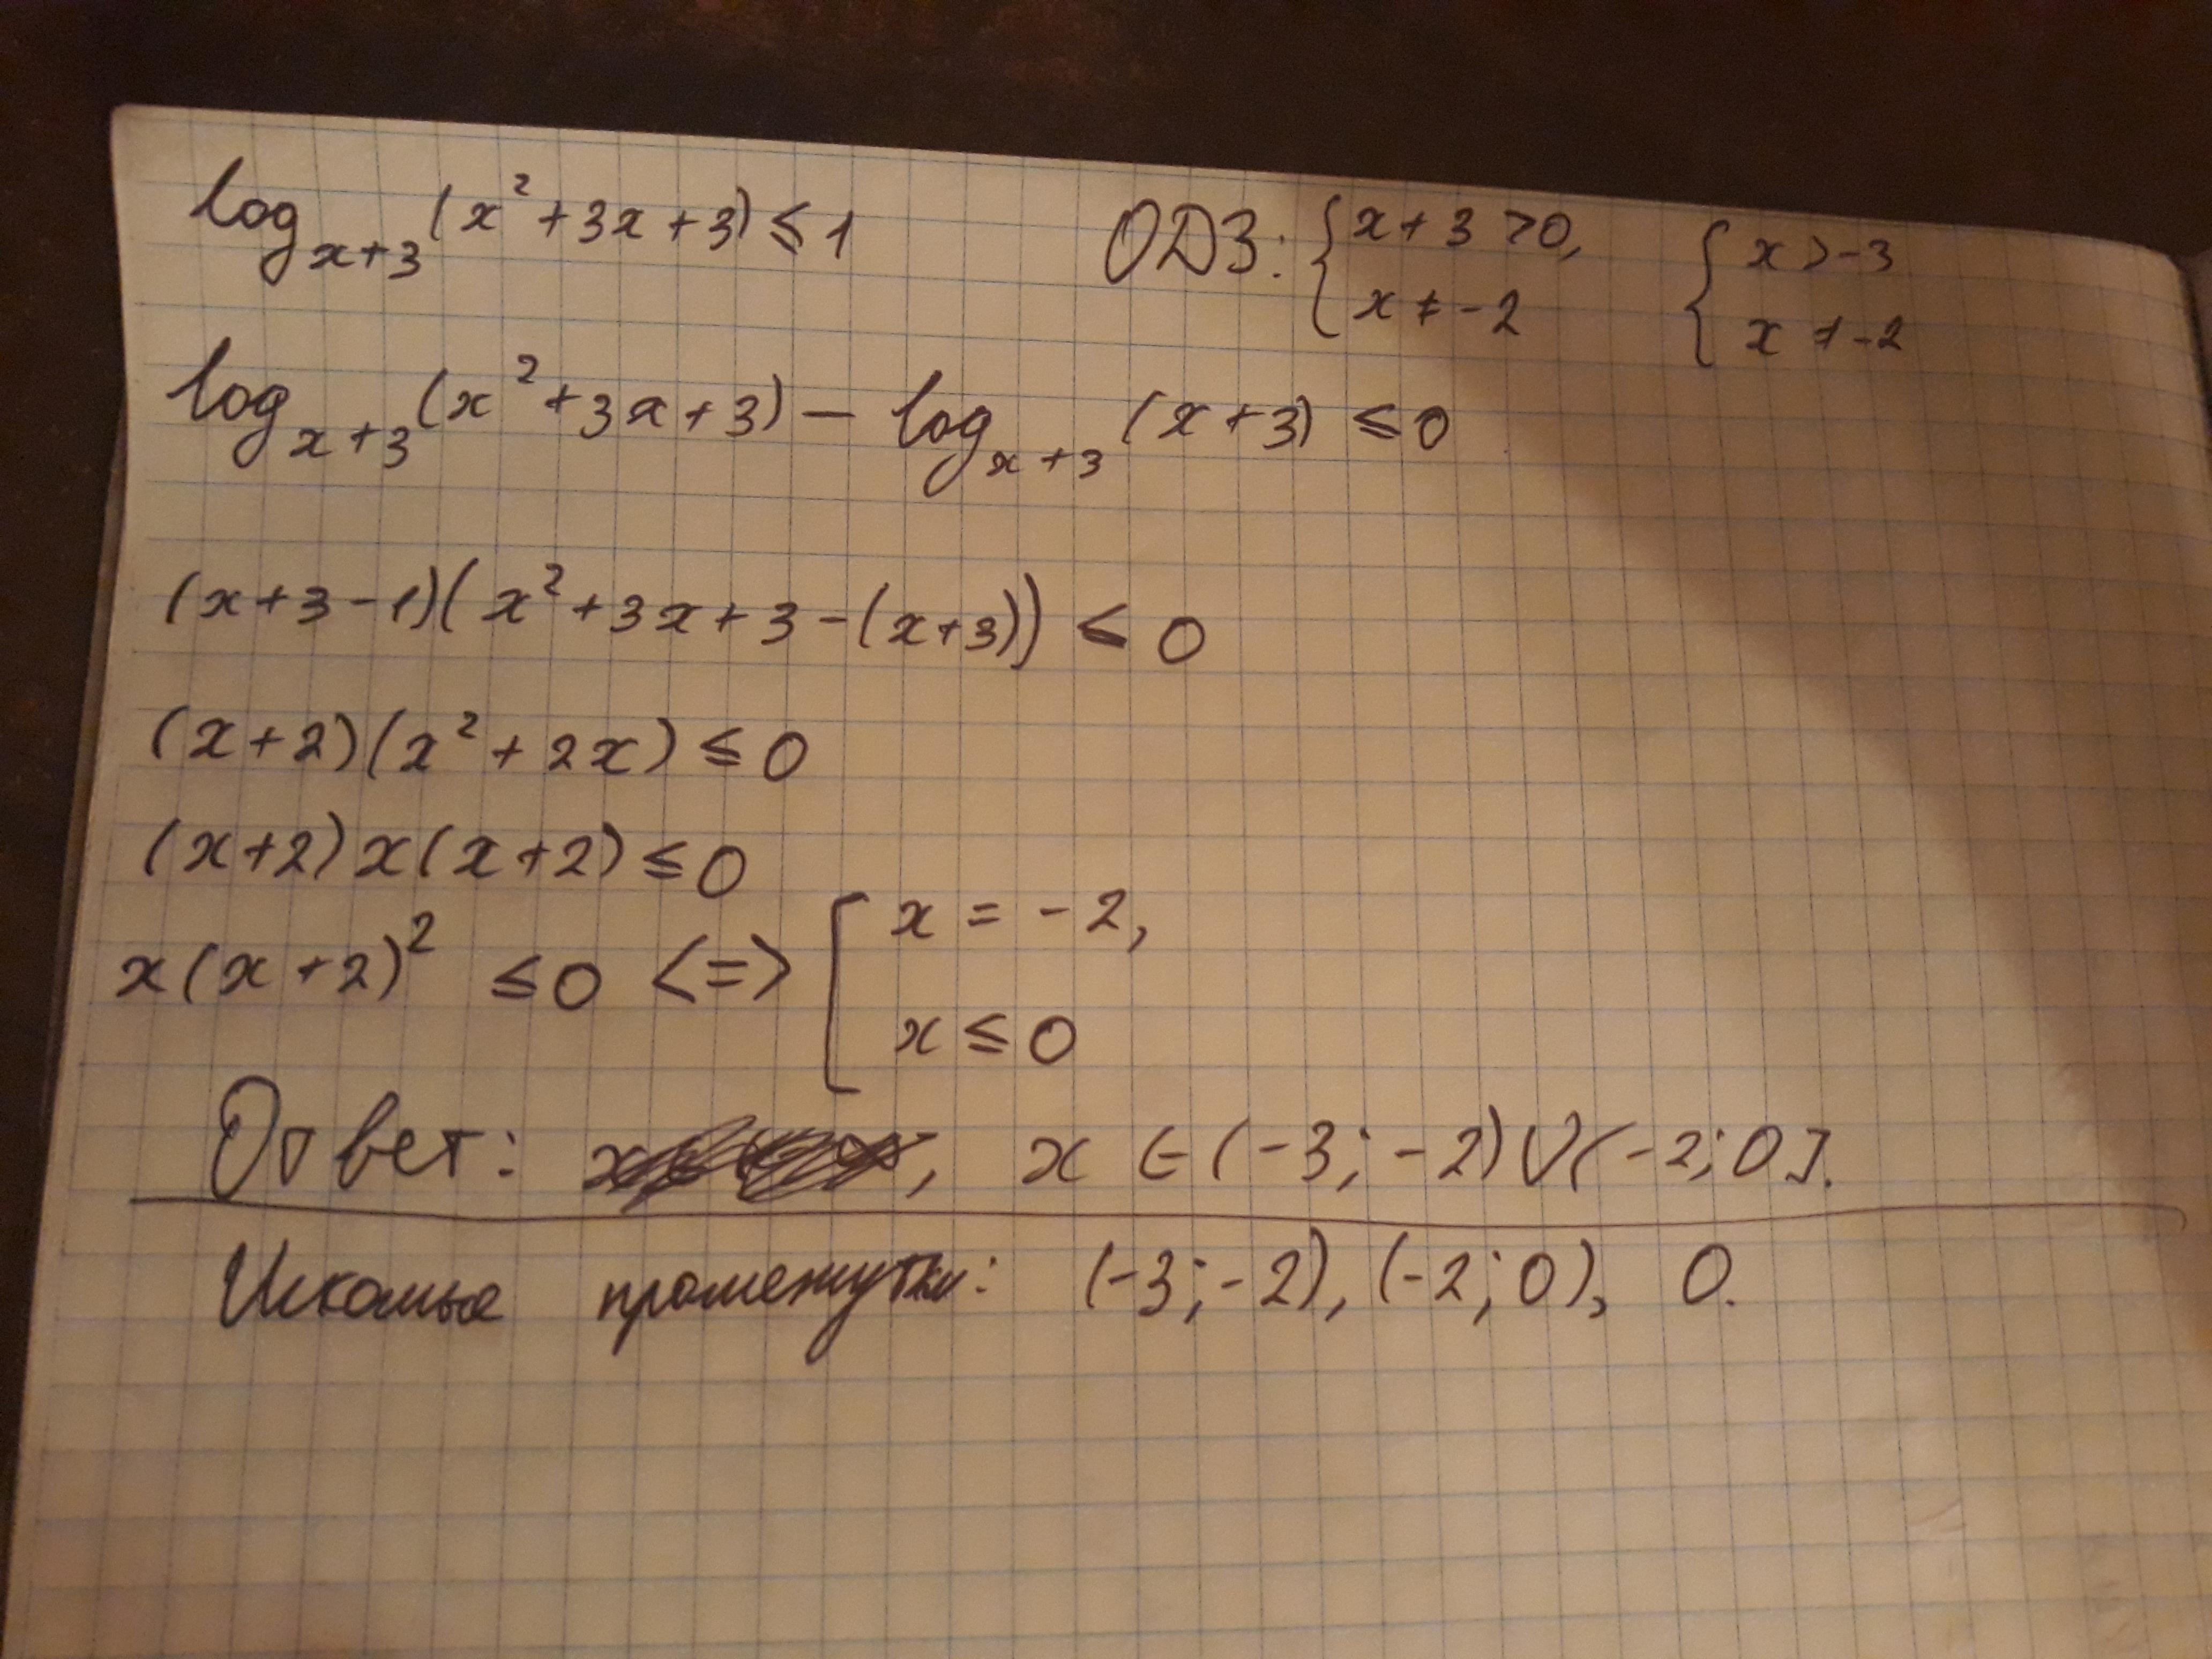 log_{x+3}(x²+3x+3) ≤ 1 ОДЗ: { x+3 >0, x ≠ -2 { x > -3 x ≠ -2
log_{x+3}(x²+3x+3) - log_{x+3}(x+3) ≤ 0
(x+3-1)(x²+3x+3-(x+3)) ≤ 0
(x+2)(x²+2x) ≤ 0
(x+2)x(x+2) ≤ 0
x(x+2)² ≤ 0 <=> [ x = -2, x ≤ 0
Ответ: , x ∈ (-3; -2) ∪ (-2; 0].
Искомые промежутки: (-3; -2), (-2; 0), 0.